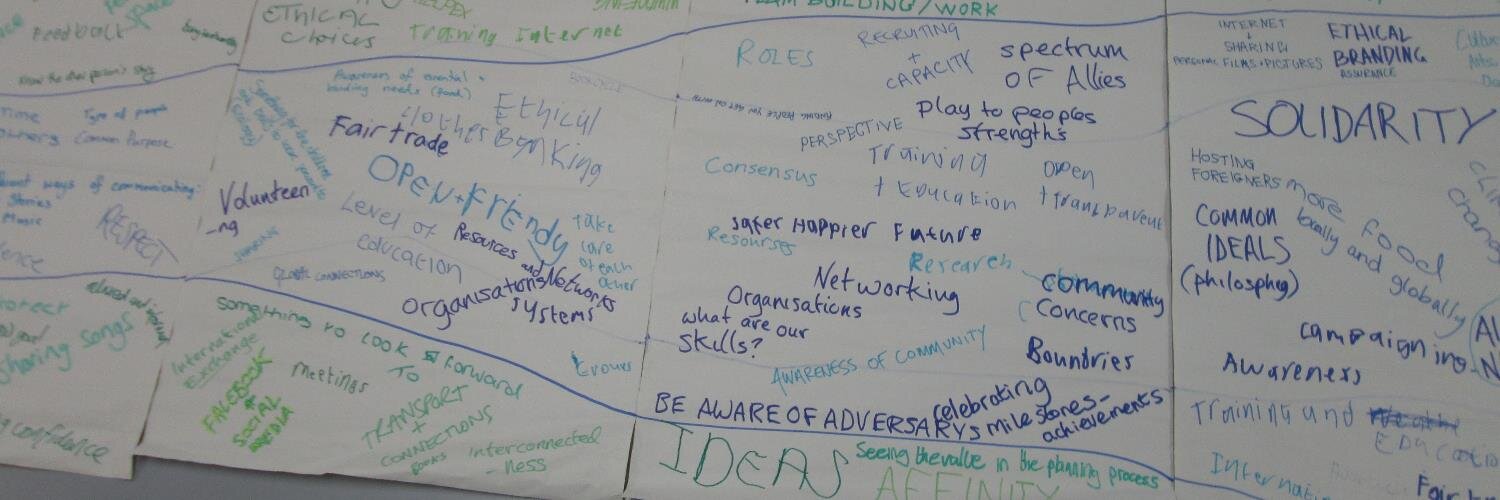 Feedback
ETHICAL
choices
Training Internet
TEAM BUILDING/WORK
ROLES
RECRUITING
+
CAPACITY
spectrum
OF Allies
INTERNET
+
SHARING
PERSONAL FILMS + PICTURES
ETHICAL
BRANDING
ASSURANCE
Know the other person's story
Type of people
Common Purpose
ways of communicating:
Stories
Music
RESPECT
Volunteer
-ng
Fairtrade
Ethicul
Banking
OPEN + Friendy
take
care
of each
other
Level of
education
Resources and Networks
organisations
systems
play to peoples
strengths
PERSPECTIVE
Consensus
Training
+ Education
open
+ tranparent
safer Happier Future
Resourses
Research
Networking
community
Concerns
Organisations
what are our
skills?
Boundries
AWARENESS OF COMMUNITY
BE AWARE OF ADVERSARYS
celebrating
milestones-
achievements
SOLIDARITY
HOSTING
FOREIGNERS
more food
locally and globally
COMMON
IDEALS
(philosphy)
campaigning
Awareness
Training and
EDUCATIO
sharing songs
confidence
something to look forward
TO
International
Exchange
FACEBOOK
+
SOCIAL
MEDIA
meetings
TRANSPORT
+
CONNECTIONS
BOOKS
interconnected
-ness
IDEAS
Seeing the value in the planning process
AFFINITY